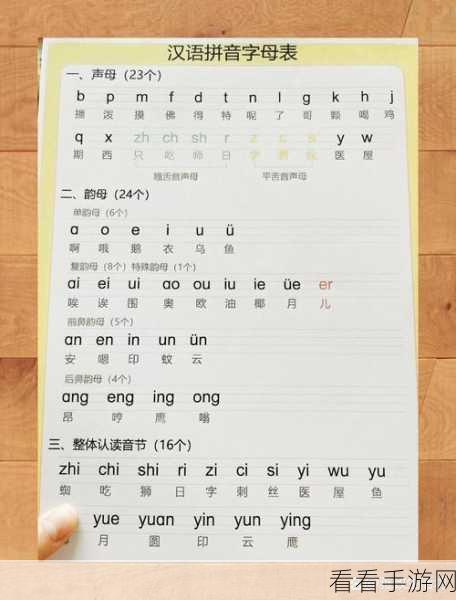 汉语拼音字母表
一、声母（23个）
b p m f d t n l g k h j
播 泼 摸 佛 得 特 呢 了 哥 颗 喝 鸡
q x zh ch sh r z c s y w
期 西 只 吃 师 日 字 医 屋
翘舌音声母 平舌音声母
二、韵母（24个）
单韵母（6个）
ɑ o e i u ü
啊 哦 鹅 衣 乌 鱼
复韵母（8个）特殊韵母（1个）
ɑi ei ui ɑo ou iu ie üe er
唉 诶 围 奥 欧 油 椰 月 儿
前鼻韵母（5个）
ɑn en in un ün
安 嗯 印 蚊 云
后鼻韵母（4个）
ɑng eng ing ong
昂 哼 鹰 嗡
三、整体认读音节（16个）
zhi chi shi ri zi ci si yi wu yu
蜘 吃 狮 日 字 刺 丝 医 屋 鱼
yue yuɑn yin yun ying
月 圆 印 云 鹰
看看手游网